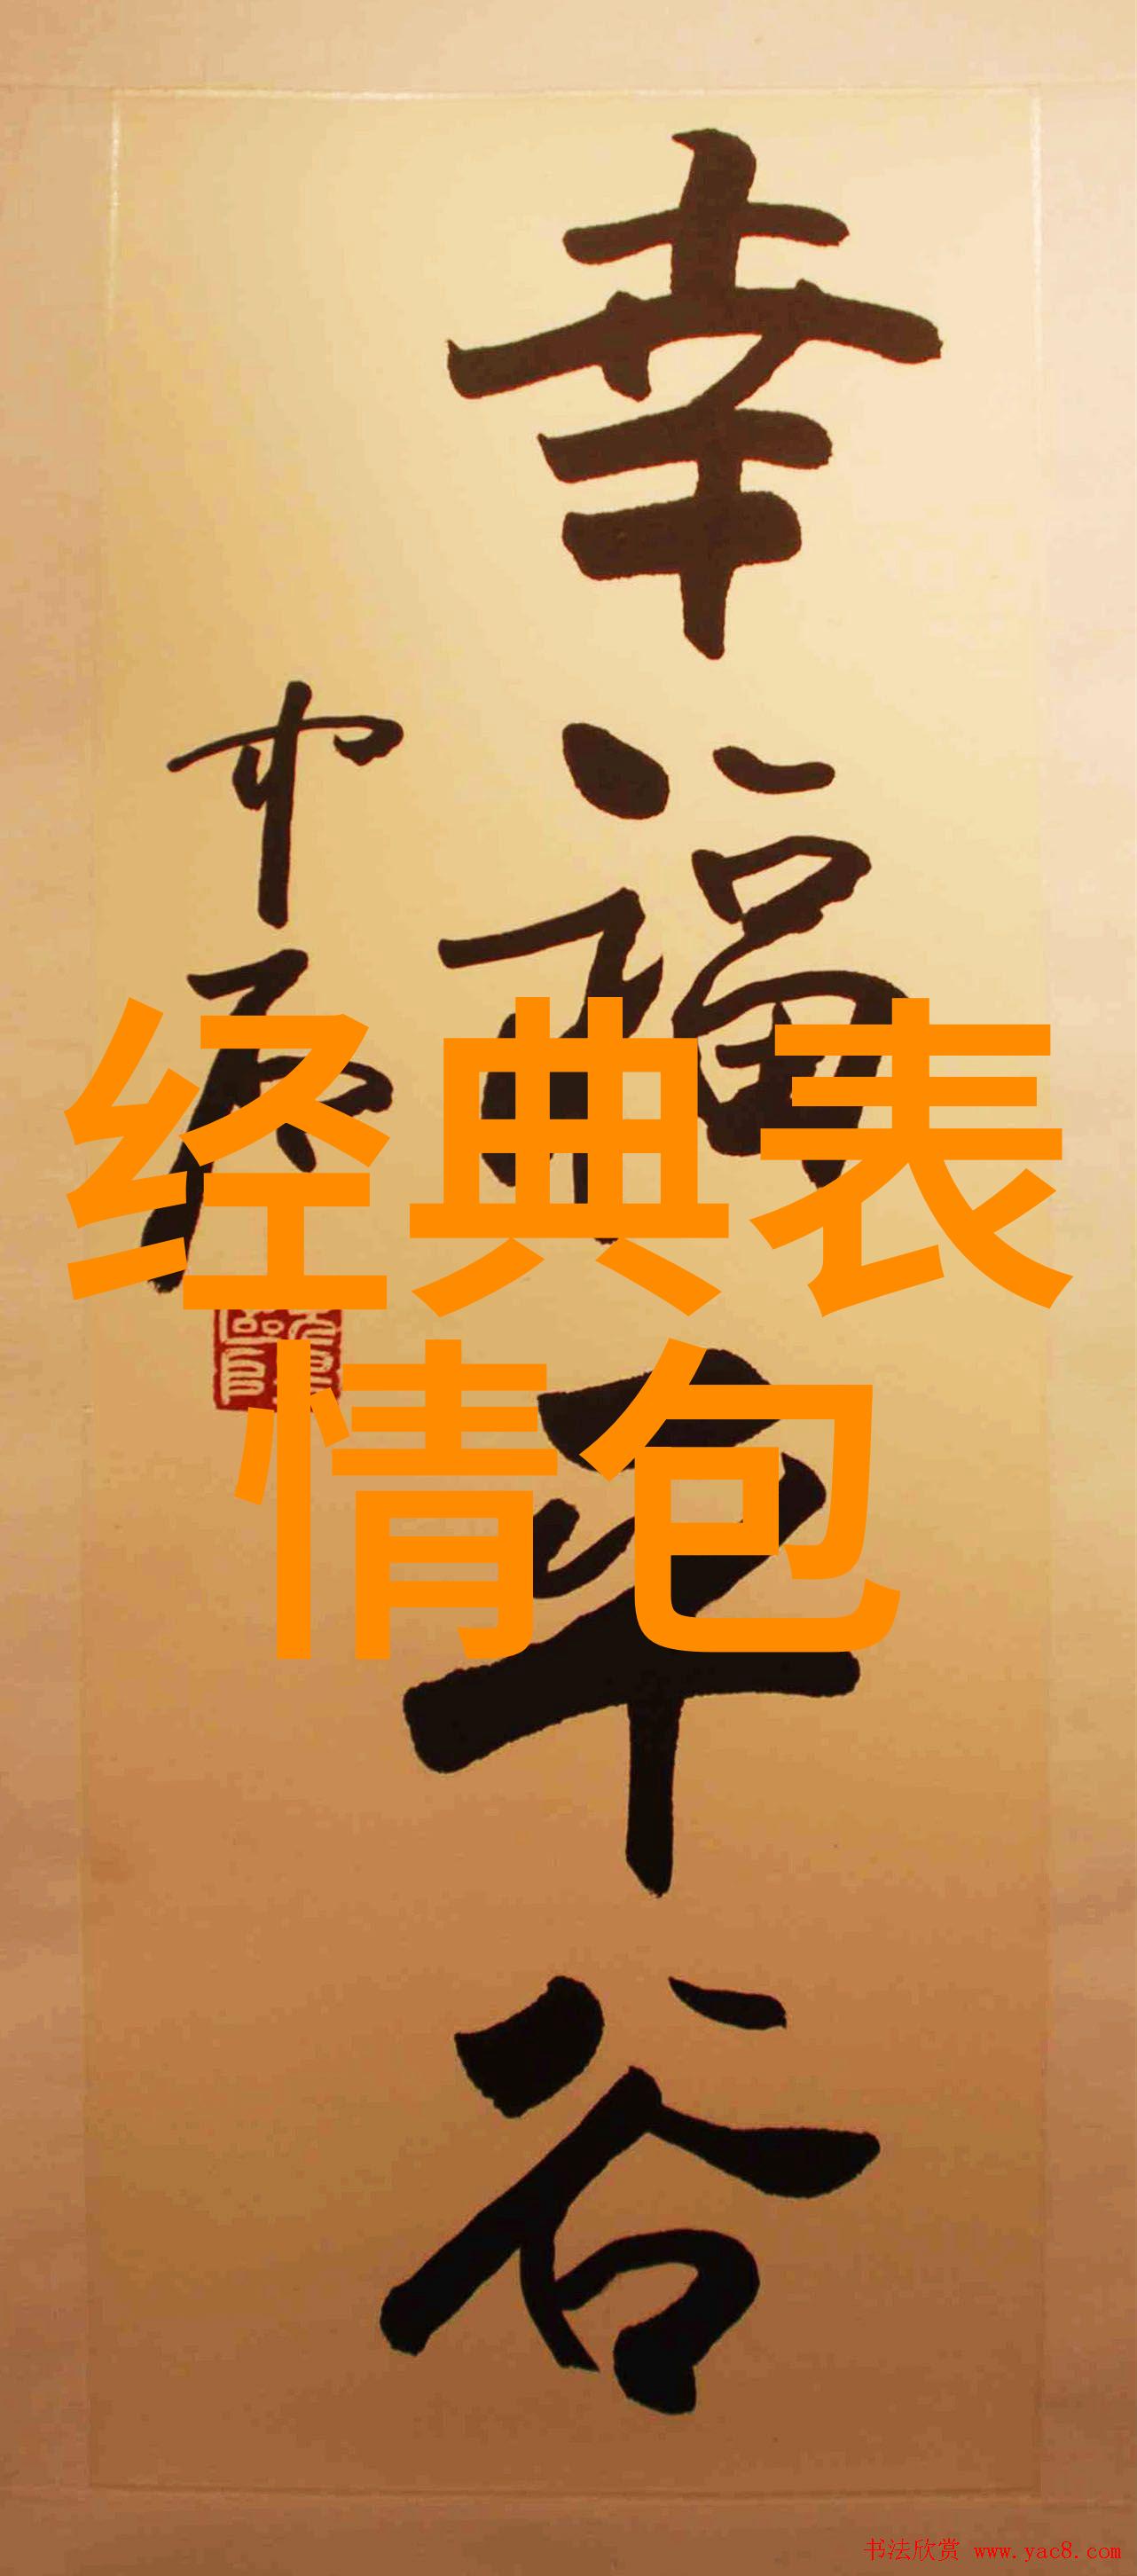 幸福平谷
中石
经典表
情包
书法欣赏 www.yac8.com